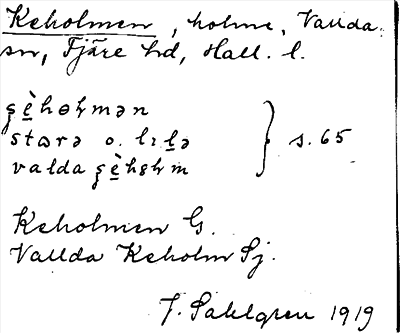 Keholmen, holme, Vallda
sn, Fjäre hd, Hall. l.
ʂè̱hɵɧmən
starə o. lɪḻə } s. 65
valda ʂè̱hɵɧm
Keholmen G.
Vallda Keholm Sj.
J. Sahlgren 1919